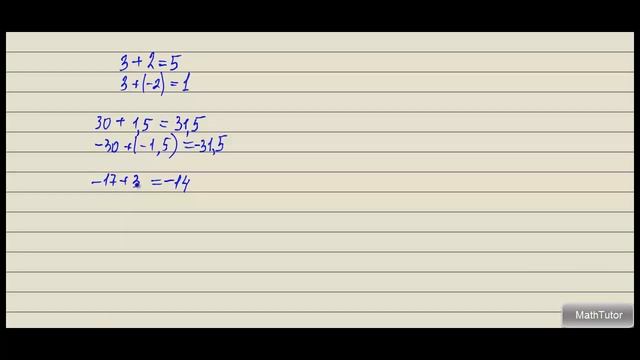 3 + 2 = 5
3 + (-2) = 1
30 + 1,5 = 31,5
-30 + (-1,5) = -31,5
-17 + 3 = -14
MathTutor